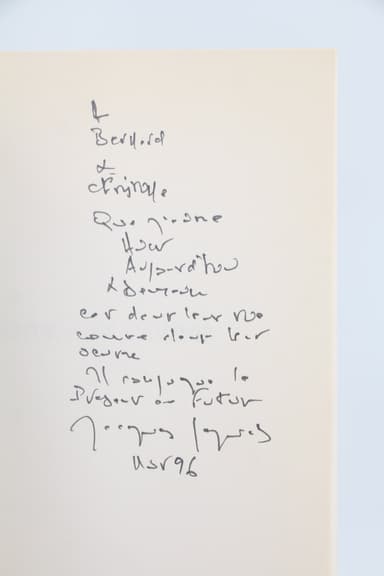 A
Bernard
&
Que j'aime
Hier
Aujourd'hui
& Demain
car dans leur vie
comme dans leur
oeuvre
Il conjugue le
Présent au Futur
Jacques
96